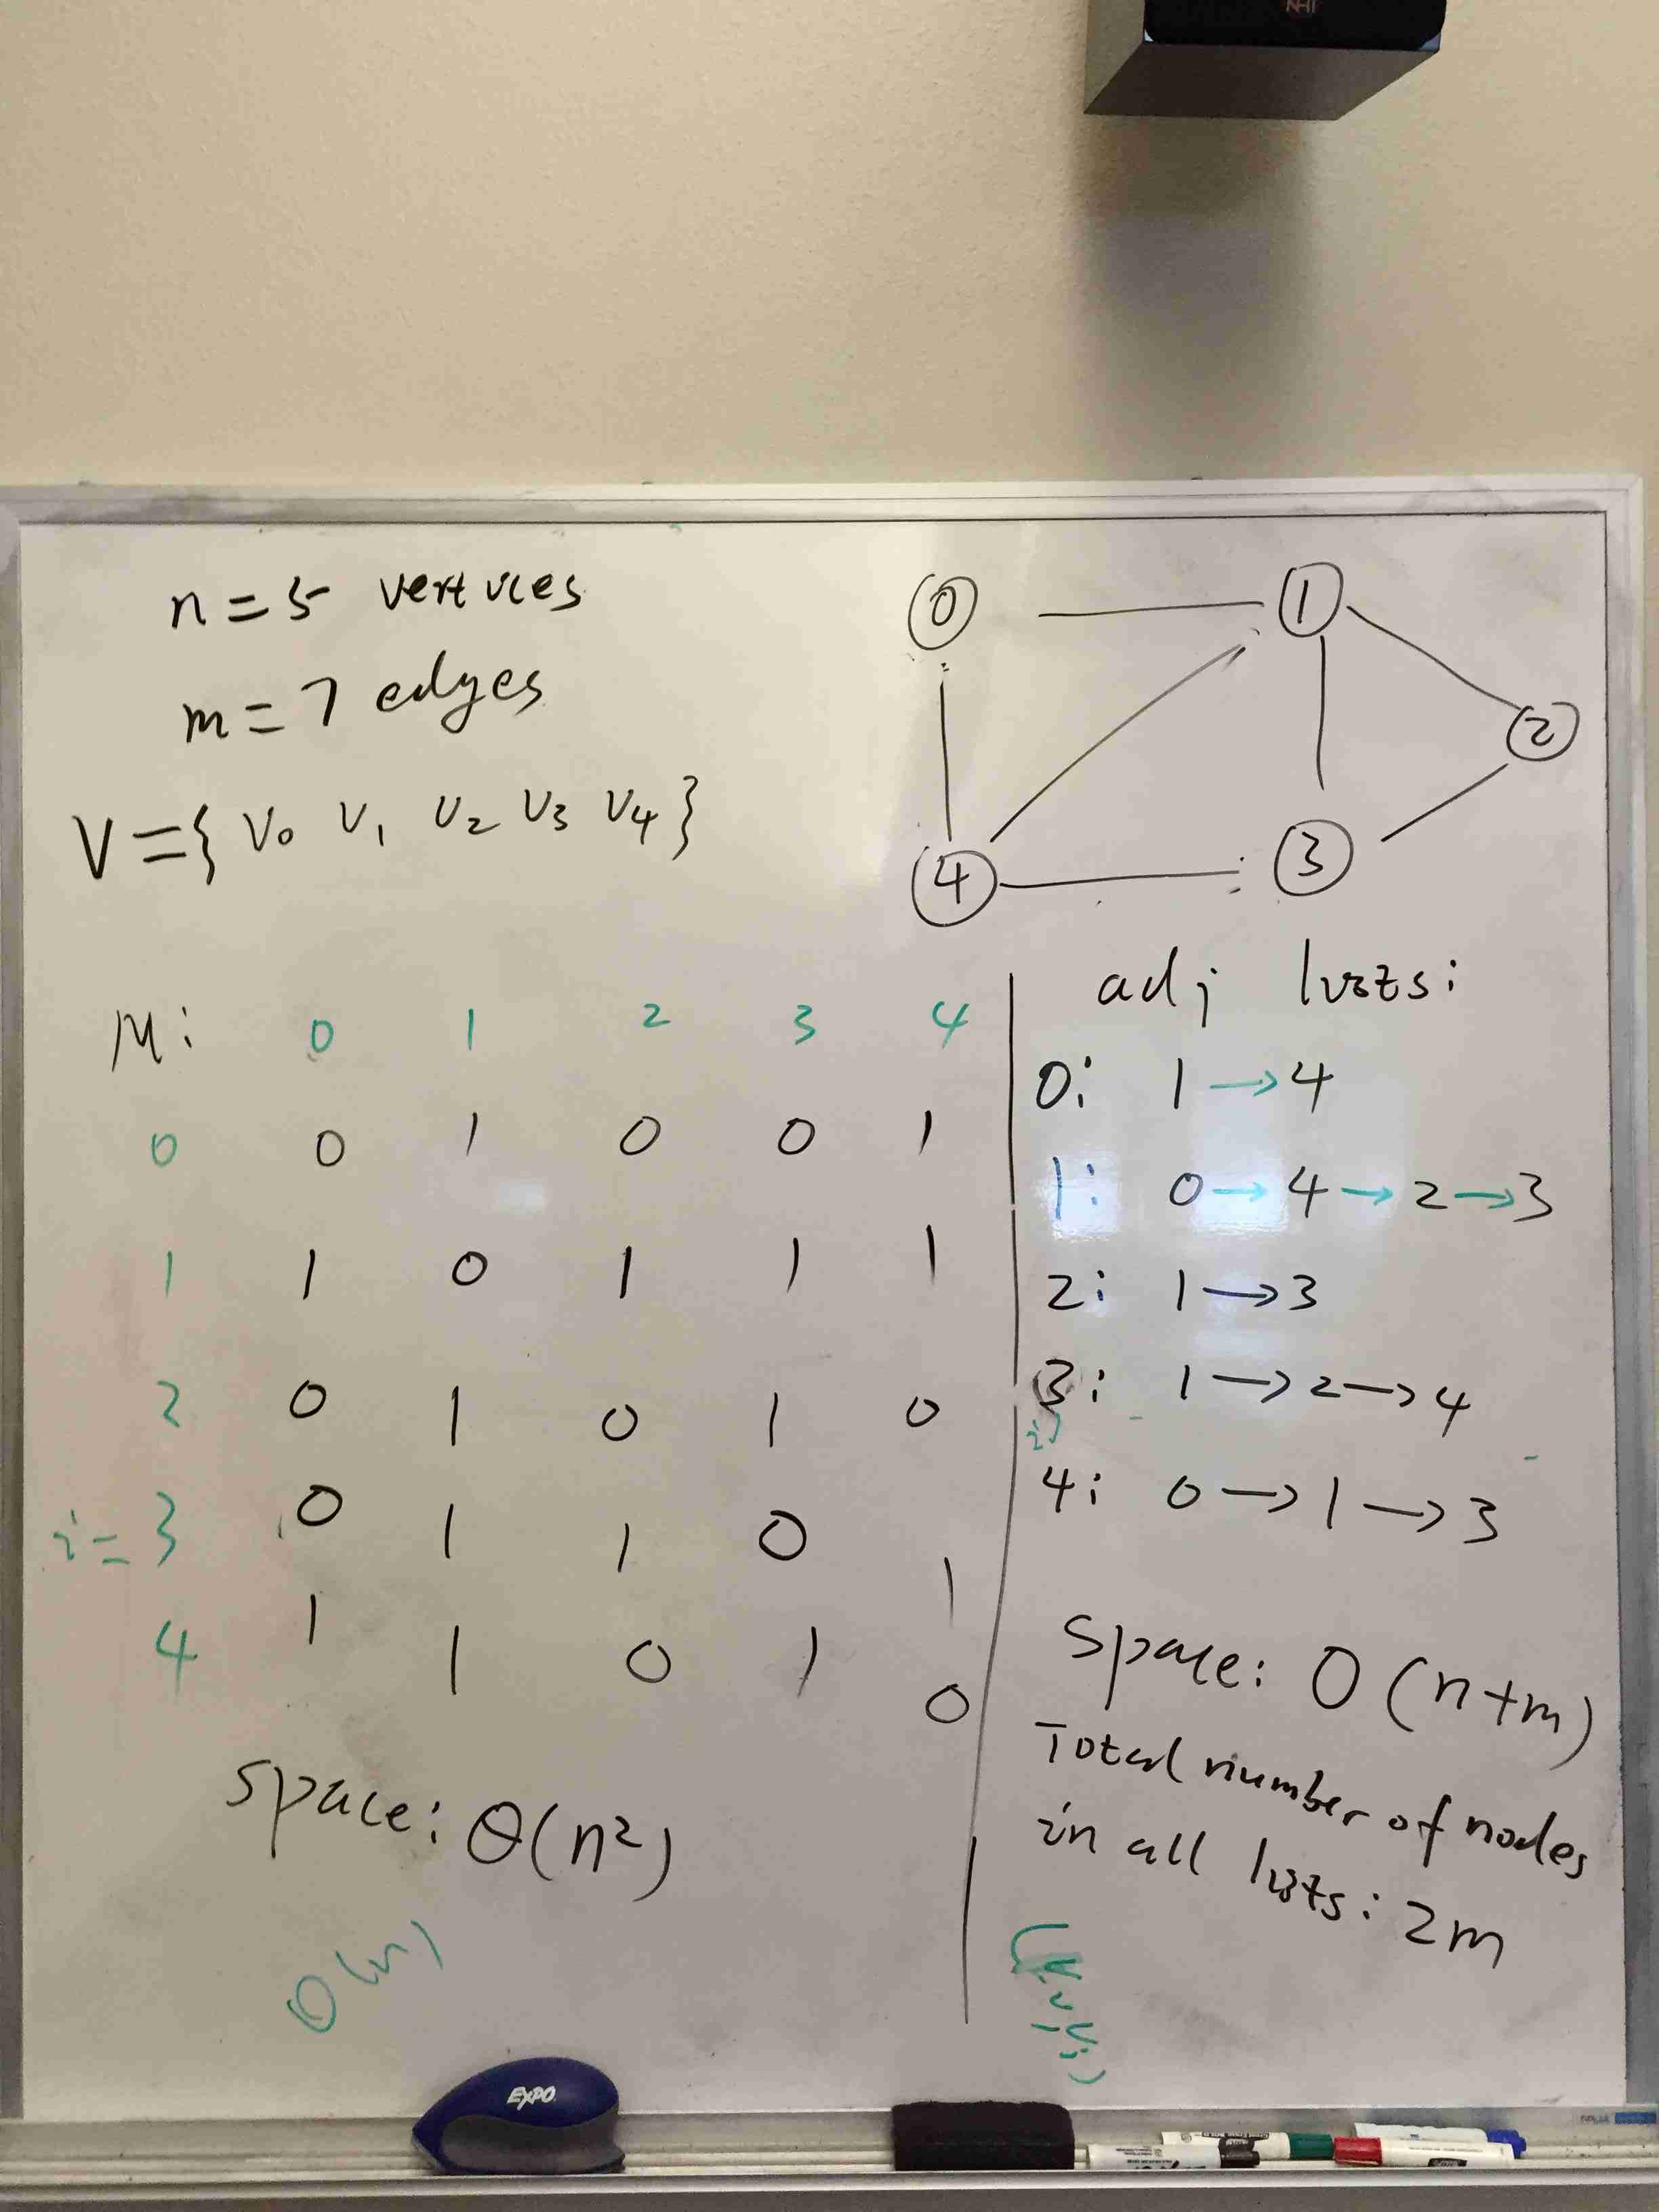 n = 5 vertices
m = 7 edges
V = { V0 V1 V2 V3 V4 }
0
1
2
3
4
M: 0 1 2 3 4
0 0 1 0 0 1
1 1 0 1 1 1
2 0 1 0 1 0
i = 3 0 1 1 0 1
4 1 1 0 1 0
space: Θ(n²)
O(n)
adj lists:
0: 1 → 4
1: 0 → 4 → 2 → 3
2: 1 → 3
3: 1 → 2 → 4
i
4: 0 → 1 → 3
Space: O(n+m)
Total number of nodes
in all lists: 2m
EXPO